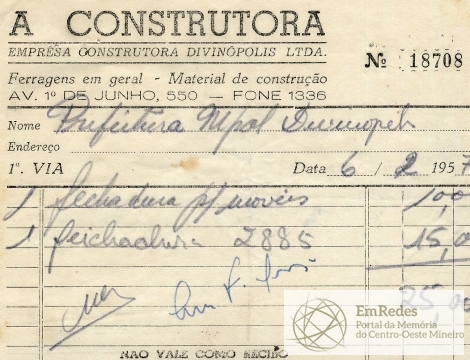 A CONSTRUTORA
EMPRÊSA CONSTRUTORA DIVINÓPOLIS LTDA.
Nº 18708
Ferragens em geral - Material de construção
AV. 1º DE JUNHO, 550 — FONE 1336
Nome Prefeitura Mpal
Endereço
1ª. VIA Data 6 / 2 1957
1 fechadura p/ moveis 10,00
1 feichadura 2885 15,00
25,00
NAO VALE COMO RECIBO
EmRedes
Portal da Memória
do Centro-Oeste Mineiro